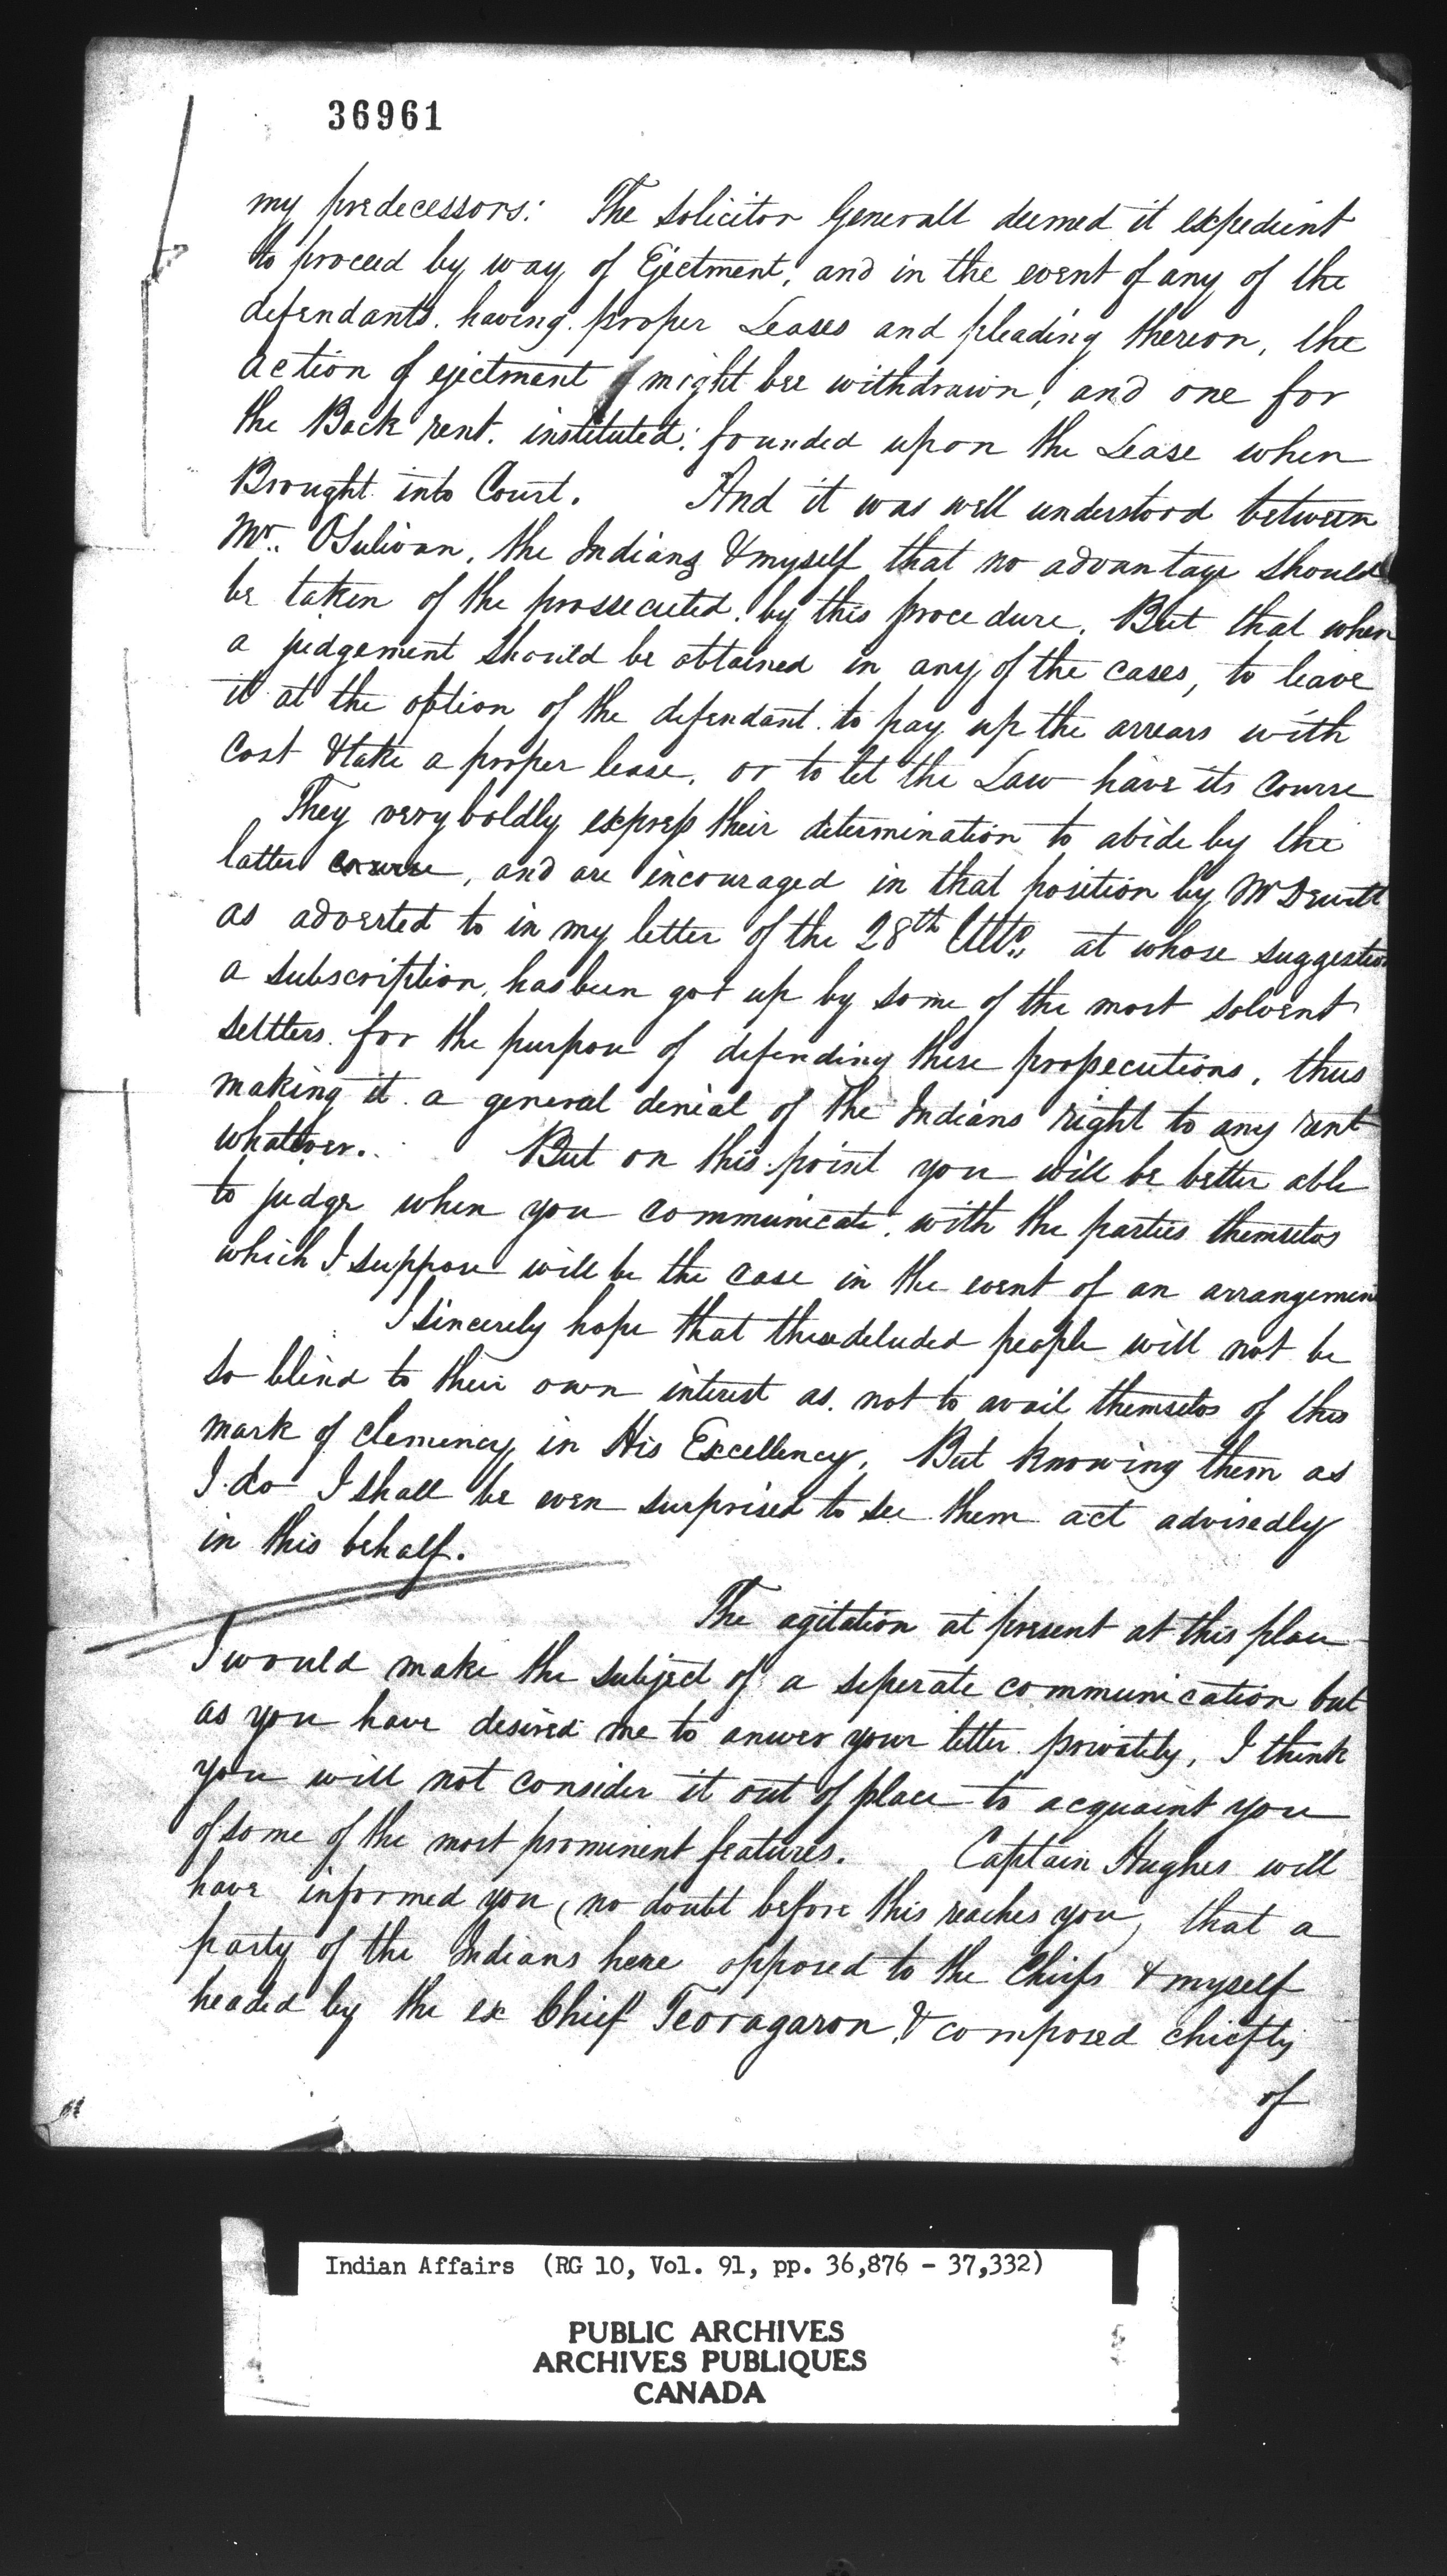 36961
my predecessors: The Solicitor Generall deemed it expedient
to proceed by way of Ejectment, and in the event of any of the
defendants. having proper Leases and pleading thereon, the
action of ejectment might bee withdrawn, and one for
the Back rent. instituted; founded upon the Lease when
Brought into Court. And it was well understood between
Mr. OSulivan, the Indians & myself that no advantage should
be taken of the prossecuted. by this procedure. But that when
a judgement should be obtained in any of the cases, to leave
it at the option of the defendant. to pay up the arrears with
Cost & take a proper lease, or to let the Law have its Course
They very boldly express their determination to abide by the
latter course, and are encouraged in that position by Mr Dewitt
as adverted to in my letter of the 28th Ulto., at whose suggestion
a subscription, has been got up by some of the most solvent
settlers. for the purpose of defending these prosecutions, thus
making it a general denial of the Indians right to any rent
whatever. But on this point you will be better able
to judge when you communicate. with the parties themselvs
which I suppose will be the case in the event of an arrangement
I sincerely hope that these deluded people will not be
so blind to their own interest as. not to avail themselvs of this
mark of clemency in His Excellency. But knowing them as
I do I shall be even surprised to see them act advisedly
in this behalf.
The agitation at present at this place
I would make the subject of a seperate communication but
as you have desired me to anwer your letter privately, I think
you will not consider it out of place to acquaint you
of some of the most prominent features. Captain Hughes will
have informed you (no doubt before this reaches you) that a
party of the Indians here opposed to the Chiefs & myself
headed by the ex Chief Teoragaron, & composed chiefly
of
Indian Affairs (RG 10, Vol. 91, pp. 36,876 - 37,332)
PUBLIC ARCHIVES
ARCHIVES PUBLIQUES
CANADA